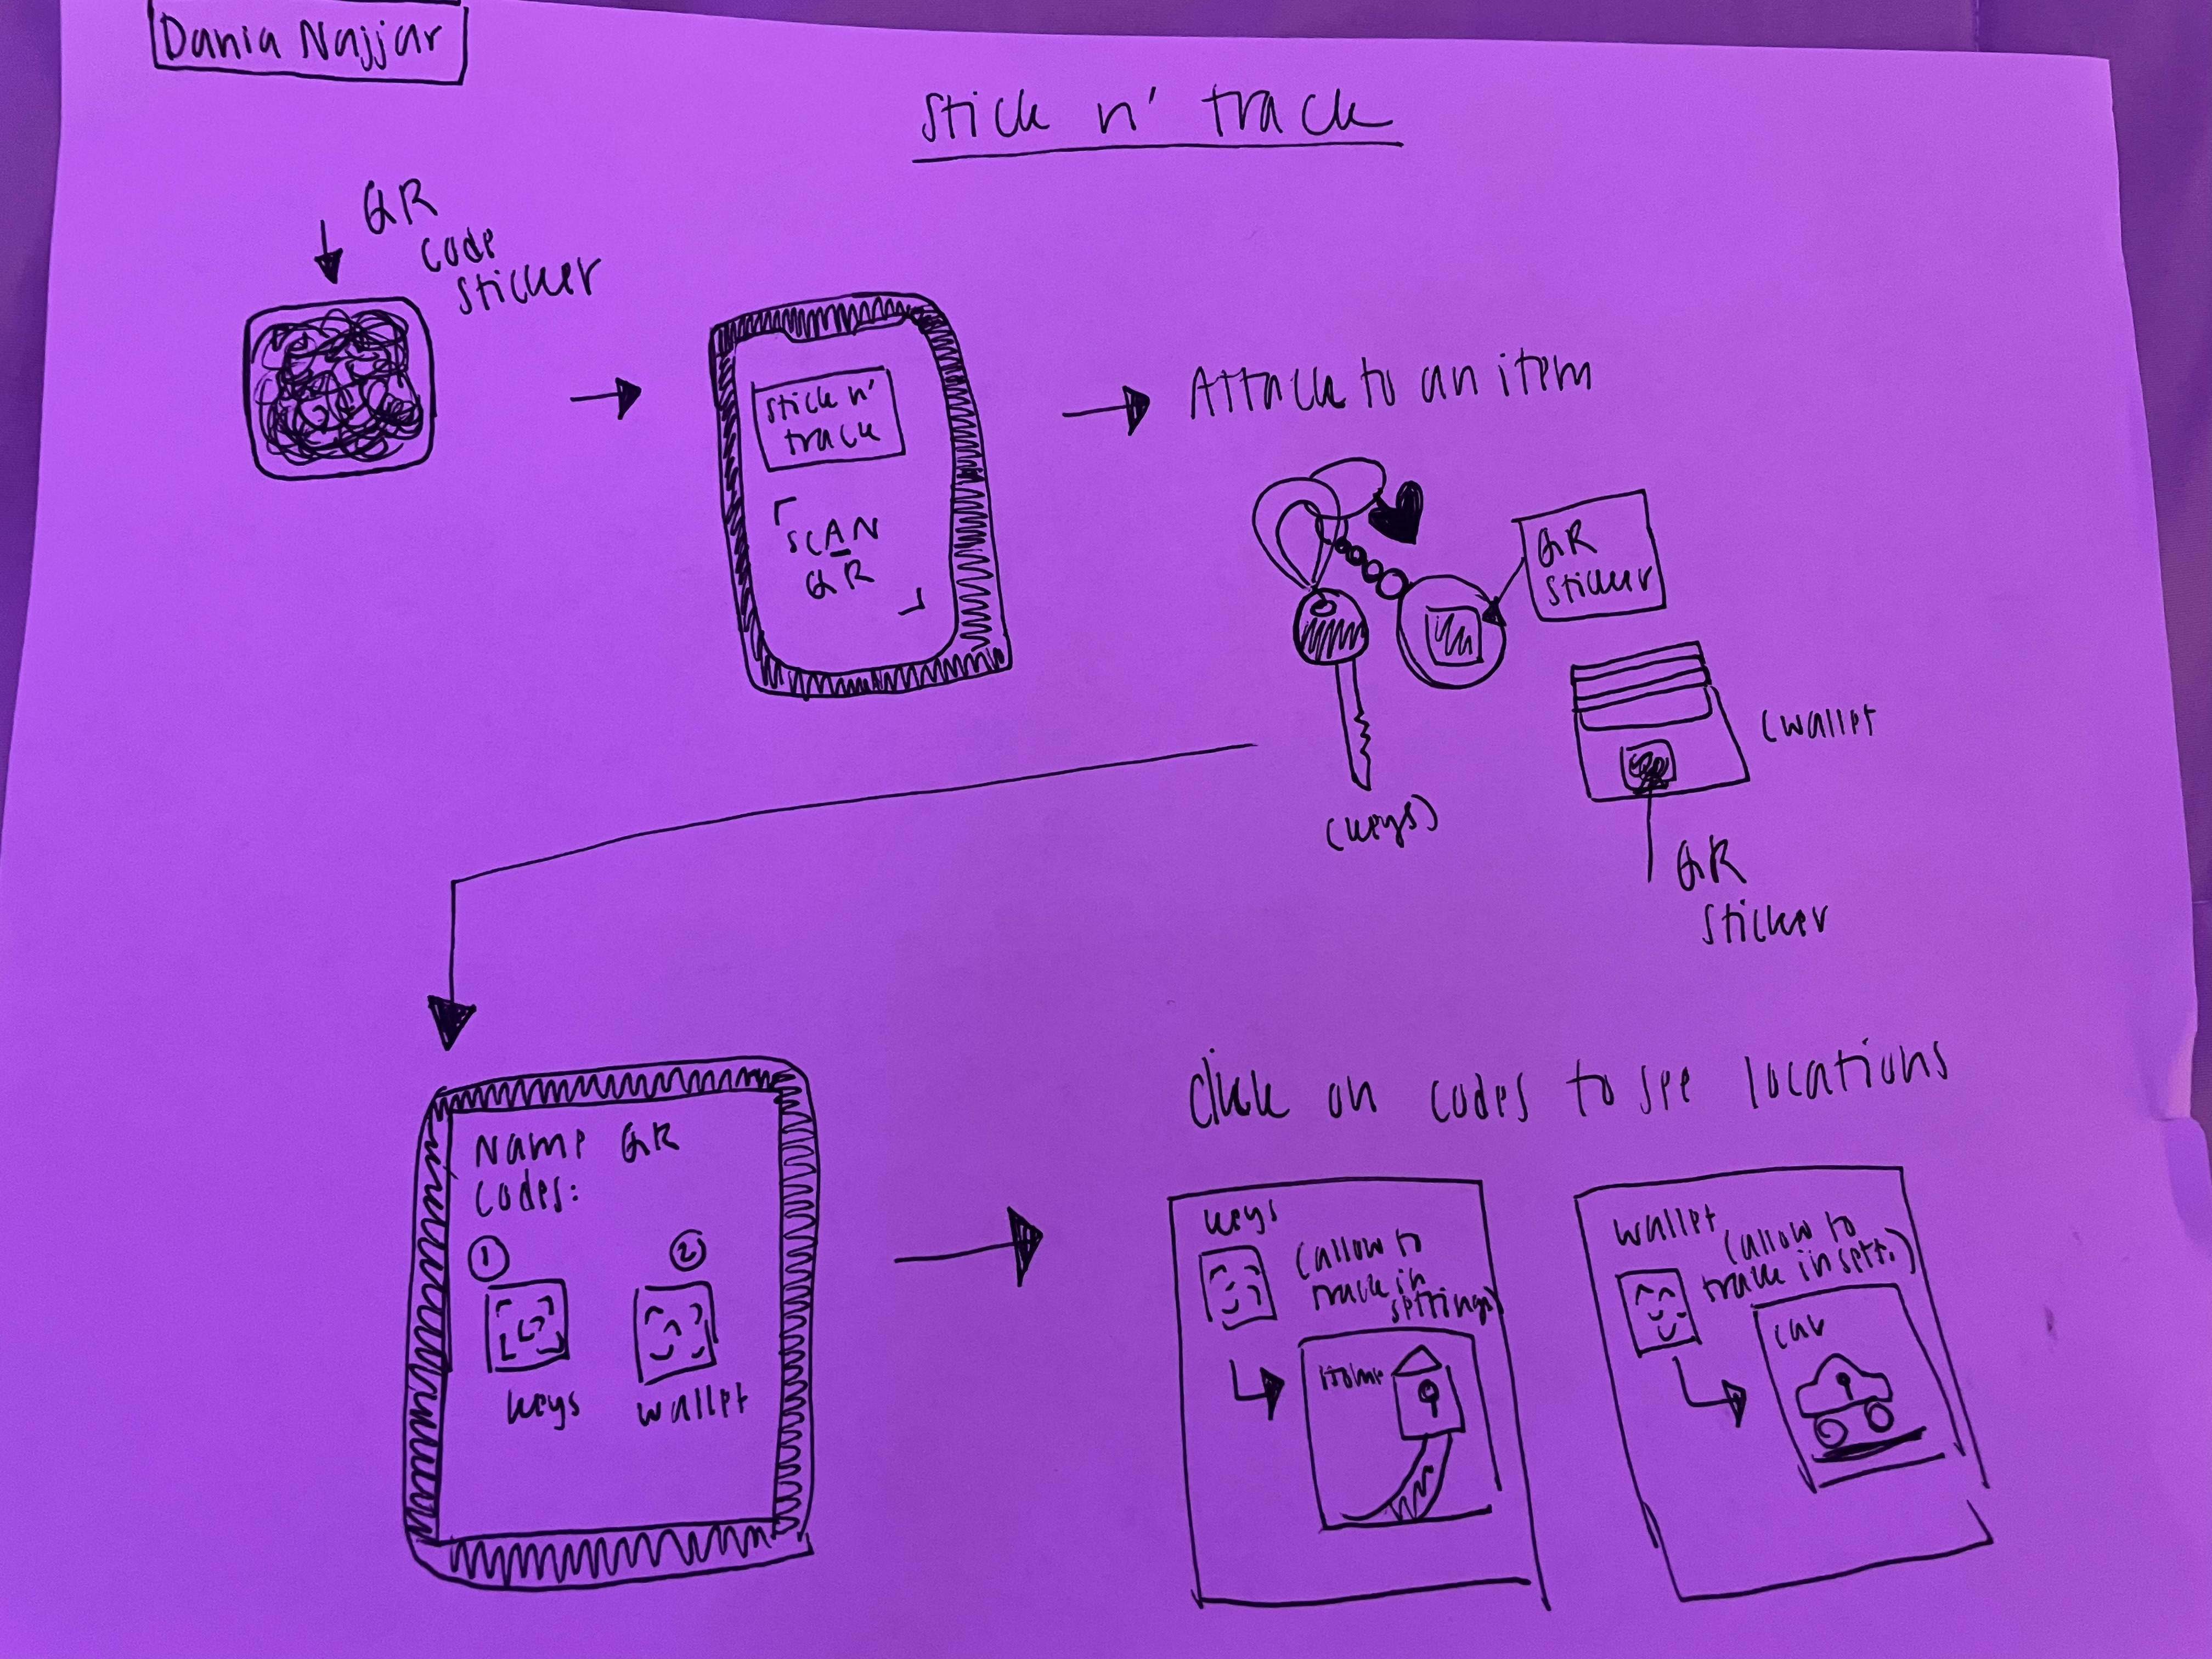 Dania Najjar
Stick n' track
QR
code
sticker
stick n'
track
SCAN
QR
Attach to an item
QR
sticker
(wallet
(keys)
QR
sticker
Name QR
codes:
1
2
keys
wallet
click on codes to see locations
keys
(allow to
track in
settings)
Home
wallet
(allow to
track in sett.)
car